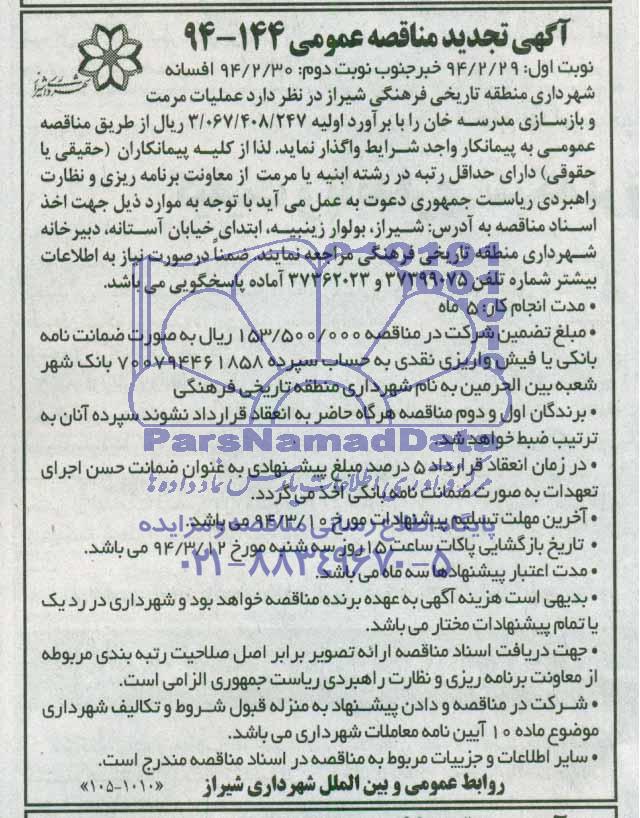 آگهی تجدید مناقصه عمومی ۱۴۴-۹۴
نوبت اول: ۹۴/۲/۲۹ خبر جنوب نوبت دوم: ۹۴/۲/۳۰ افسانه
شهرداری منطقه تاریخی فرهنگی شیراز در نظر دارد عملیات مرمت
و بازسازی مدرسه خان را با برآورد اولیه ۳/۰۶۷/۴۰۸/۲۴۷ ریال از طریق مناقصه
عمومی به پیمانکار واجد شرایط واگذار نماید. لذا از کلیه پیمانکاران (حقیقی یا
حقوقی) دارای حداقل رتبه در رشته ابنیه یا مرمت از معاونت برنامه ریزی و نظارت
راهبردی ریاست جمهوری دعوت به عمل می آید با توجه به موارد ذیل جهت اخذ
اسناد مناقصه به آدرس: شیراز، بولوار زینبیه، ابتدای خیابان آستانه، دبیرخانه
شهرداری منطقه تاریخی فرهنگی مراجعه نمایند. ضمناً درصورت نیاز به اطلاعات
بیشتر شماره تلفن ۳۷۳۹۹۰۷۵ و ۳۷۳۶۲۰۲۳ آماده پاسخگویی می باشد.
• مدت انجام کار: ۵ ماه
• مبلغ تضمین شرکت در مناقصه ۱۵۳/۵۰۰/۰۰۰ ریال به صورت ضمانت نامه
بانکی یا فیش واریزی نقدی به حساب سپرده ۷۰۰۷۹۴۴۶۱۸۵۸ بانک شهر
شعبه بین الحرمین به نام شهرداری منطقه تاریخی فرهنگی
• برندگان اول و دوم مناقصه هرگاه حاضر به انعقاد قرارداد نشوند سپرده آنان به
ترتیب ضبط خواهد شد.
ParsNamadData
• در زمان انعقاد قرارداد ۵ درصد مبلغ پیشنهادی به عنوان ضمانت حسن اجرای
تعهدات به صورت ضمانت نامه بانکی اخذ می گردد.
• آخرین مهلت تسلیم پیشنهادات مورخ ۹۴/۳/۱۰ می باشد.
پایگاه اطلاع رسانی مناقصه و مزایده
• تاریخ بازگشایی پاکات ساعت ۱۵ روز سه شنبه مورخ ۹۴/۳/۱۲ می باشد.
۰۲۱-۸۸۳۴۹۶۷۰-۵
• مدت اعتبار پیشنهادها سه ماه می باشد.
• بدیهی است هزینه آگهی به عهده برنده مناقصه خواهد بود و شهرداری در رد یک
یا تمام پیشنهادات مختار می باشد.
• جهت دریافت اسناد مناقصه ارائه تصویر برابر اصل صلاحیت رتبه بندی مربوطه
از معاونت برنامه ریزی و نظارت راهبردی ریاست جمهوری الزامی است.
• شرکت در مناقصه و دادن پیشنهاد به منزله قبول شروط و تکالیف شهرداری
موضوع ماده ۱۰ آیین نامه معاملات شهرداری می باشد.
• سایر اطلاعات و جزییات مربوط به مناقصه در اسناد مناقصه مندرج است.
روابط عمومی و بین الملل شهرداری شیراز «۱۰۵-۱۰۱۰»